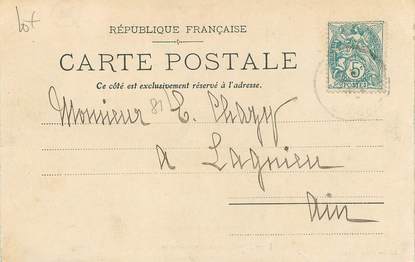 lot
RÉPUBLIQUE FRANÇAISE
CARTE POSTALE
Ce côté est exclusivement réservé à l'adresse.
5
POSTES
Monsieur E. Chagy
a Lagnieu
Ain